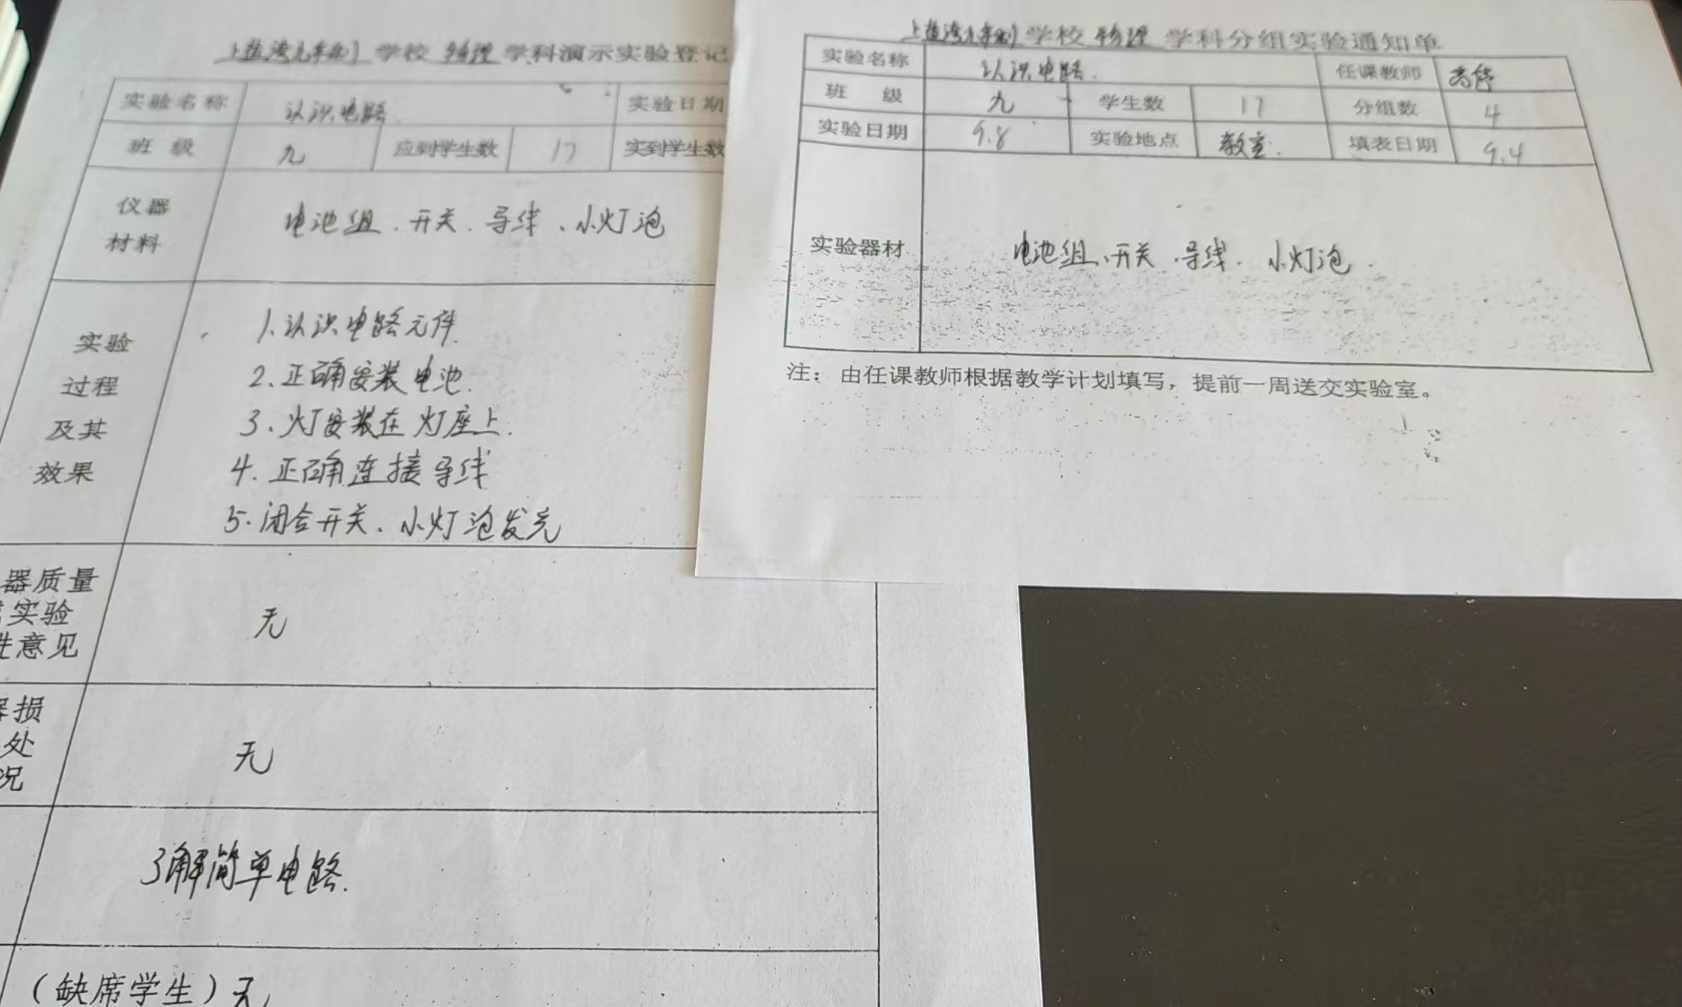 学校 物理 学科演示实验登记
实验名称 认识电路 实验日期
班 级 九 应到学生数 17 实到学生数
仪器
材料
电池组、开关、导线、小灯泡
实验
过程
及其
效果
1、认识电路元件
2、正确安装电池
3、灯安装在灯座上.
4、正确连接导线
5、闭合开关、小灯泡发光
器质量
实验
性意见
无
器损
处
况
无
了解简单电路.
(缺席学生)无
学校 物理 学科分组实验通知单
实验名称 认识电路. 任课教师
班 级 九 学生数 17 分组数 4
实验日期 9.8 实验地点 教室. 填表日期 9.4
实验器材 电池组、开关、导线、小灯泡.
注：由任课教师根据教学计划填写，提前一周送交实验室。